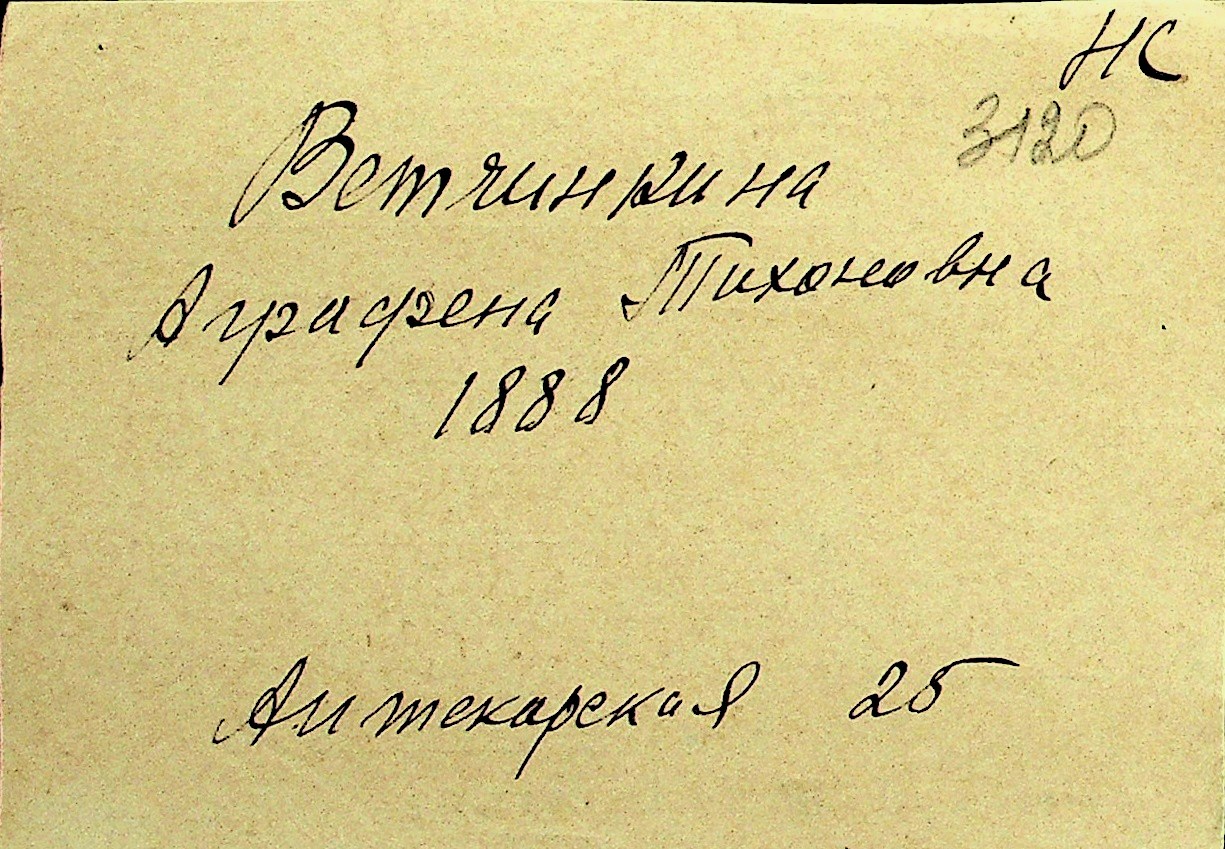 НС
3120
Ветчинкина
Аграфена Тихоновна
1888
Аптекарская 25